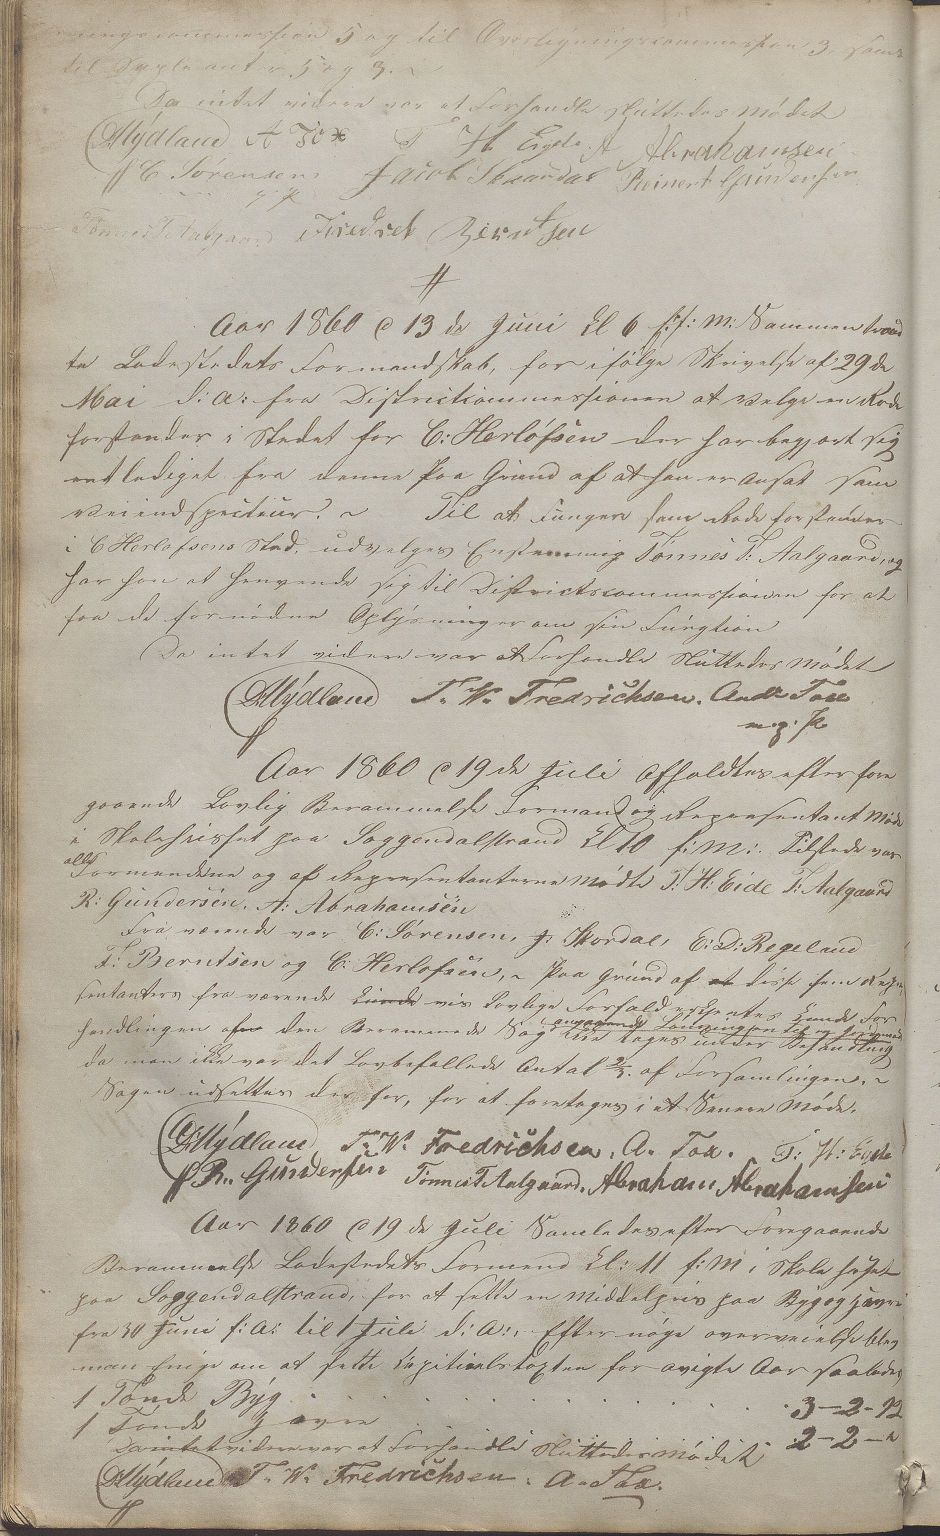 ningscommession 5 og til Overligningscommession 3, samt
til Suplianter 5 og 3. ~
Da intet videre var at Forhandle sluttedes Mødet
Mÿdland A Tox T H Eigde A Abrahamsen
C Sørensen Jacob Skaardal Reinert Gundersen
Tønnes T. Aalgaard Fredrek Berntsen
Aar 1860 d 13 de Juni kl 6 f: M: Sammentraad
te Ladestedets Formandskab, for ifølge Skrivelse af 29 de
Mai d: a: fra Districtcommessionen at Vælge en Rode
forstander i Stedet for C: Herlofsen der har begjært sig
entlediget fra denne Paa Grund af at han er Ansat som
Veiindspecteur. ~ Til at Fungere som Rode forstander
i C Herlofsens Sted, udvælges Enstemmig Tønnes T: Aalgaard, og
har han at Henvende sig til Districtscommessionen for at
faa de fornødne Oplÿsninger om sin Fungtion
Da intet videre var at Forhandle Sluttedes Mødet
Mÿdland T. W. Fredrichsen. And: Tox
m. p. P.
Aar 1860 d 19 de Juli Afholdtes efter fore
gaaende Lovlig Berammelse Formand og Representant Møde
i Skolehuset paa Soggendalstrand Kl 10 f: M: Tilstede var
alle
Formændene og af Representanterne Mødte T: H: Eide T: Aalgaard
R: Gundersen. A: Abrahamsen
Fra værende var C: Sørensen, J: Skordal, E: D: Regeland
F: Berntsen og C: Herlofsen, ~ Paa Grund af at disse som Repre
sentanters fra værende vis Lovlige Forfald kunde For
handlingen den Berammede Sag ikke tages under Behandling
da man ikke var det Lovbefallede Antal 2/3 af Forsamlingen. ~
Sagen udsettes der for, for at foretages i et Senere Møde.
Mÿdland T. W. Fredrichsen. A. Tox. T: H: Eigde
R. Gundersen Tønnes T Aalgaard. Abraham Abrahamsen
Aar 1860 d 19 de Juli Samledes efter Foregaaende
Berammelse Ladestedets Formend kl: 11 f: M i Skole huset
paa Soggendalstrand, for at sætte en Middelpris paa Byg og Havre
fra 30 Juni f: A: til 1 Juli d: A:. Efter nøge overveielse blev
man Enige om at sette Capitelstaxten for avigte Aar saaledes
1 Tønde Bÿg . . . . . . . . . . 3 - 2 - 12
1 Tønde Havre . . . . . . . . . . 2 - 2 - "
Da intet videre var at Forhandle Sluttedes Mødet
Mÿdland T. W. Fredrichsen. A. Tox.